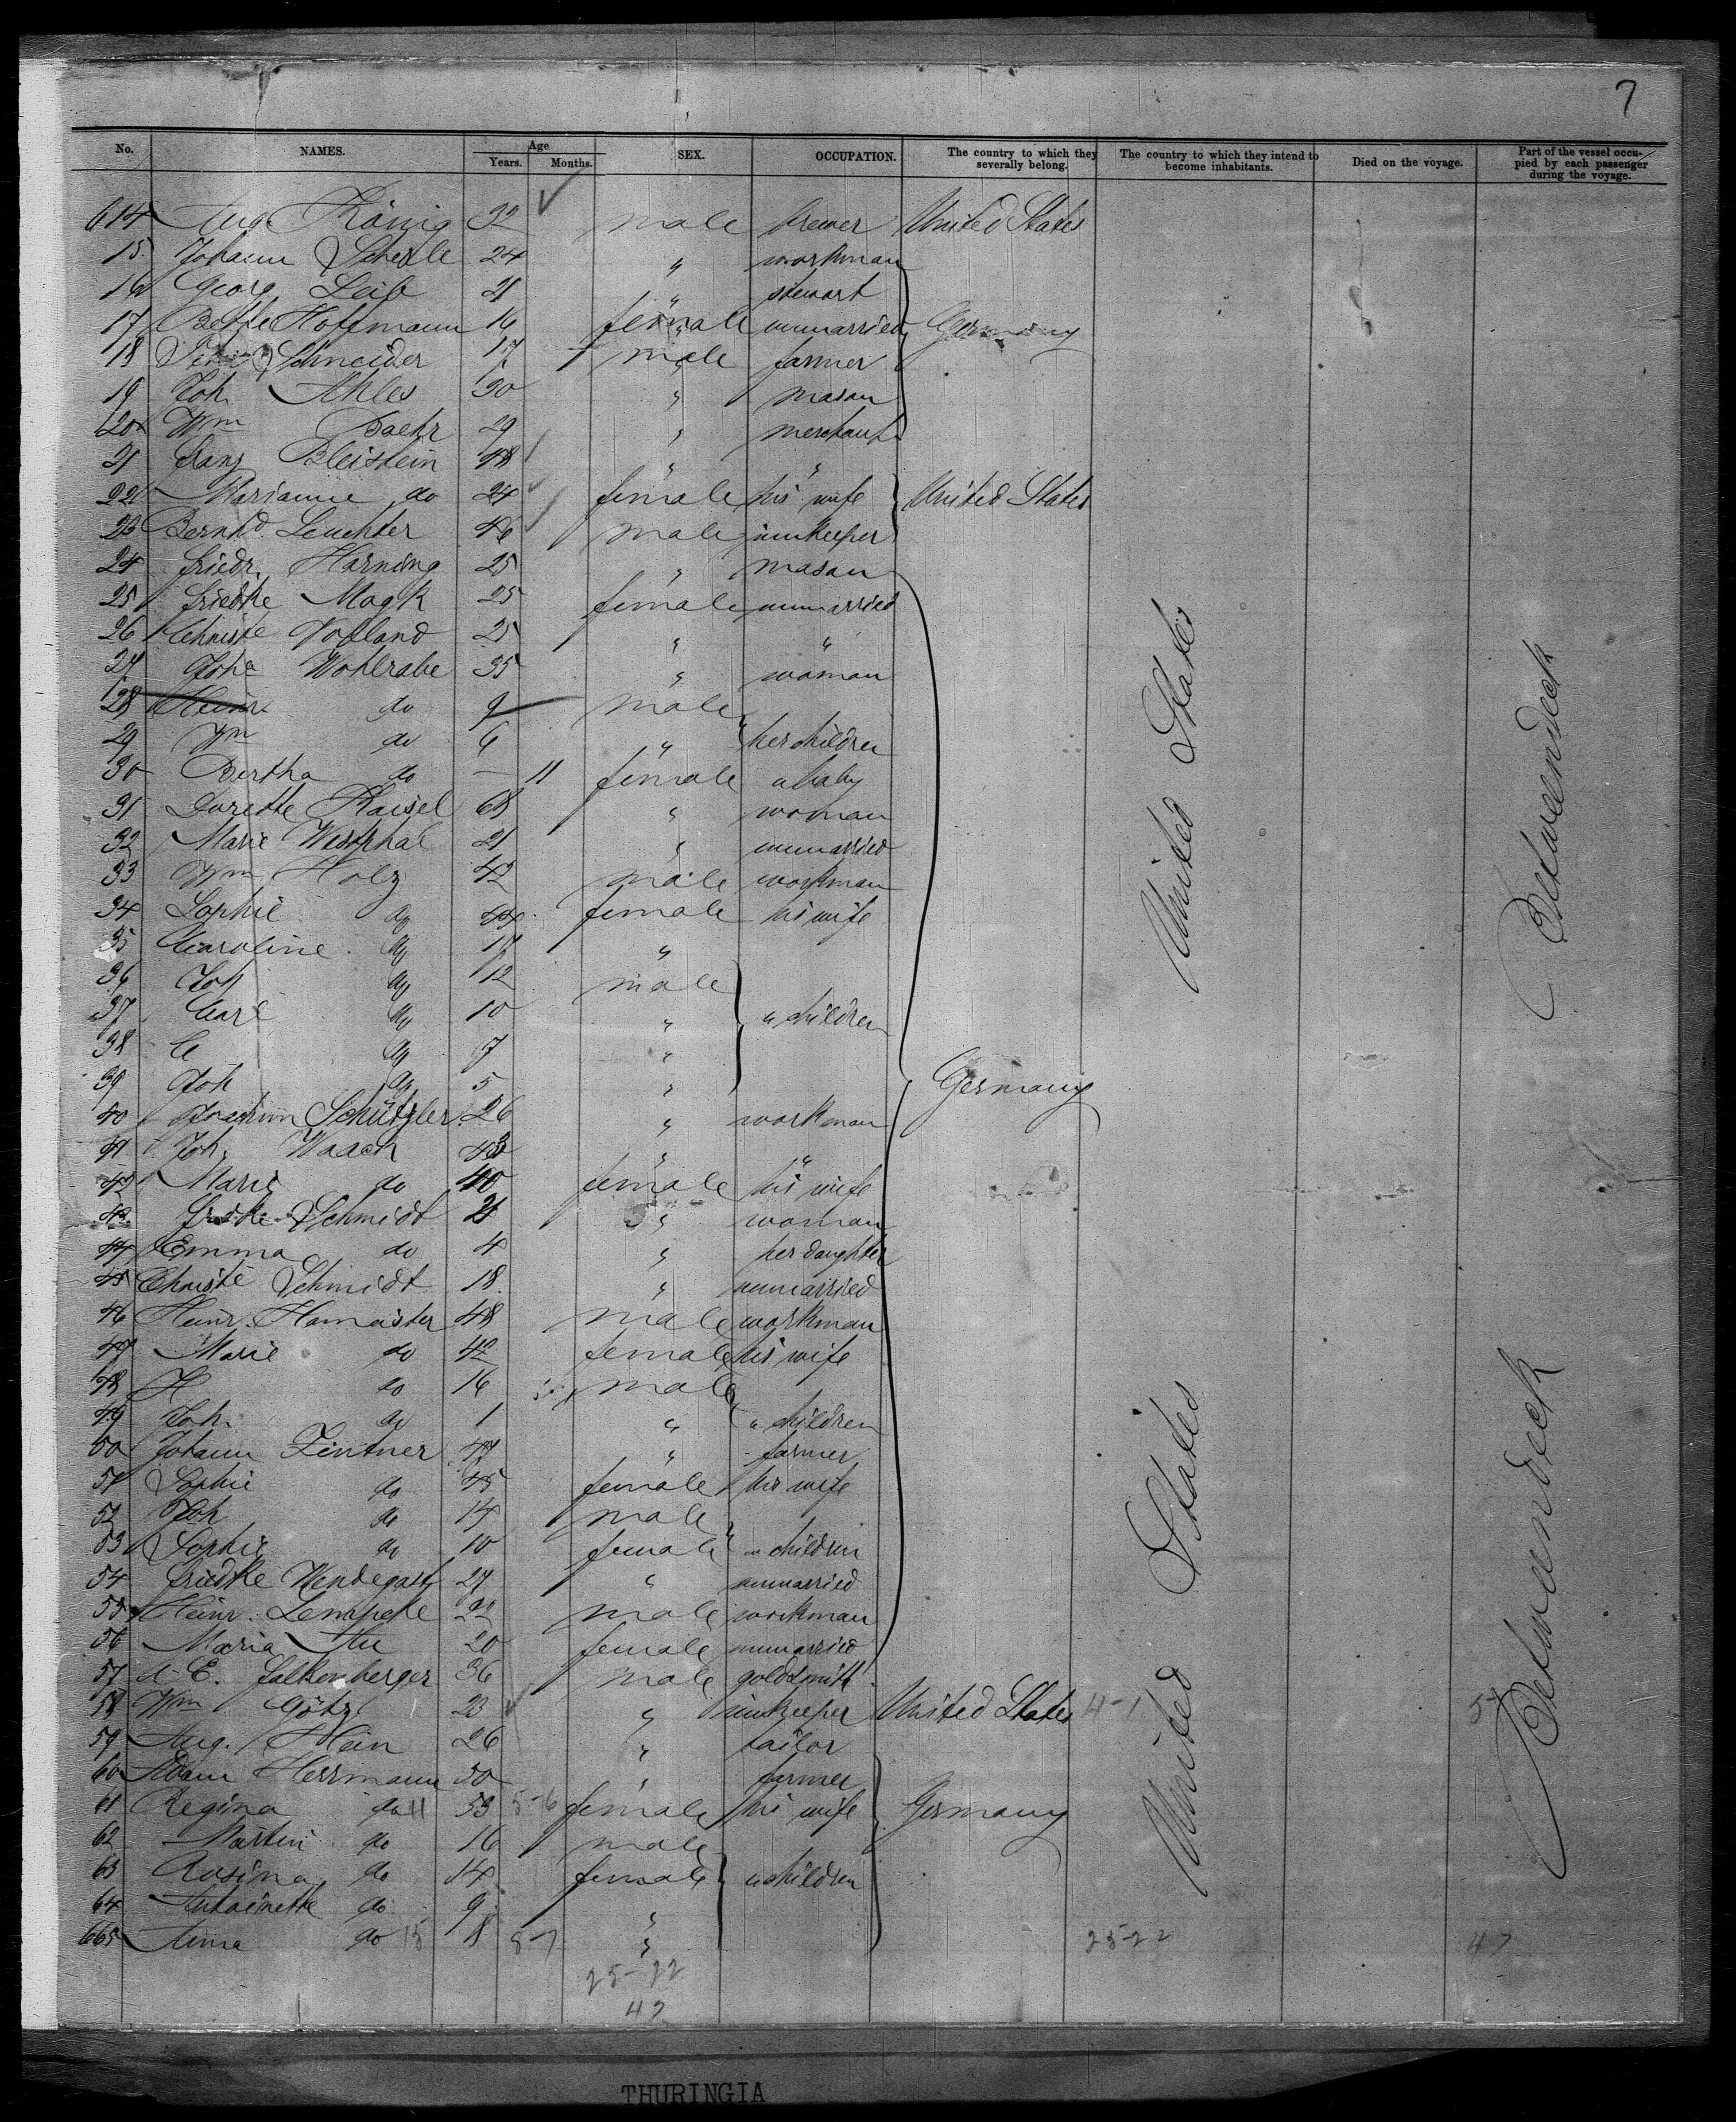 7
No. NAMES. Age Years. Months. SEX. OCCUPATION. The country to which they severally belong. The country to which they intend to become inhabitants. Died on the voyage. Part of the vessel occupied by each passenger during the voyage.
614 Aug. König 32 male brewer United States
15. Johann 24 " workman
16 Georg Leib 21 " stewart
17 Bette Hoffmann 16 female unmarried Germany
18 Schneider 17 male farmer
19 Joh. Ahles 30 " mason
20 Wm Baehr 29 " merchant
21 Franz Bleistein 48 " "
22 Marianne do 24 female his wife United States
23 Bernhd. Leuchter 46 male innkeeper
24 Friedr. Harning 25 " mason
25 Friedke Magk 25 female unmarried
26 Christe Volland 25 " "
27 Joha Wohlrabe 35 " woman
28 Heinr. do 9 male
29 Wm do 6 " her children
30 Bertha do — 11 female a baby
31 Dorette Kaisel 68 " woman
32 Marie Westphal 21 " unmarried
33 Wm Holz 42 male workman
34 Sophie do 44 female his wife
35 Caroline do 17 "
36 Joh do 12 male
37 Carl do 10 " " children
38 C do 7 "
39 Joh do 5 " Germany
40 Joachim Schützler 26 " workman
41 Joh. Waack 43 " "
42 Marie do 40 female his wife
43 Fredke Schmidt 21 " woman
44 Emma do 4 " her daughter
45 Christe Schmidt 18 " unmarried
46 Heinr. Hameister 48 male workman
47 Marie do 42 female his wife
48 H do 16 male
49 Joh. do 1 " " children
50 Johann Zentner 47 " farmer
51 Sophie do 45 female his wife
52 Joh do 14 male
53 Sophie do 10 female " children
54 Friedke Wendegast 27 " unmarried
55 Heinr. Lempcke 22 male workman
56 Maria 20 female unmarried
57 E. Falkenberger 36 male goldsmith
58 Wm Götz 23 " innkeeper United States 4-1
59 Aug. Hein 26 " tailor
60 Adam Herrmann 50 " farmer
61 Regina do 11 53 5-6 female his wife Germany
62 Martin do 16 male
63 Rosina do 14 female " children
64 Antoinette do 9 "
665 Anna do 15 8 8-7 " 25-22 47
25-22
47
United States
United States
Betweendeck
Betweendeck
THURINGIA